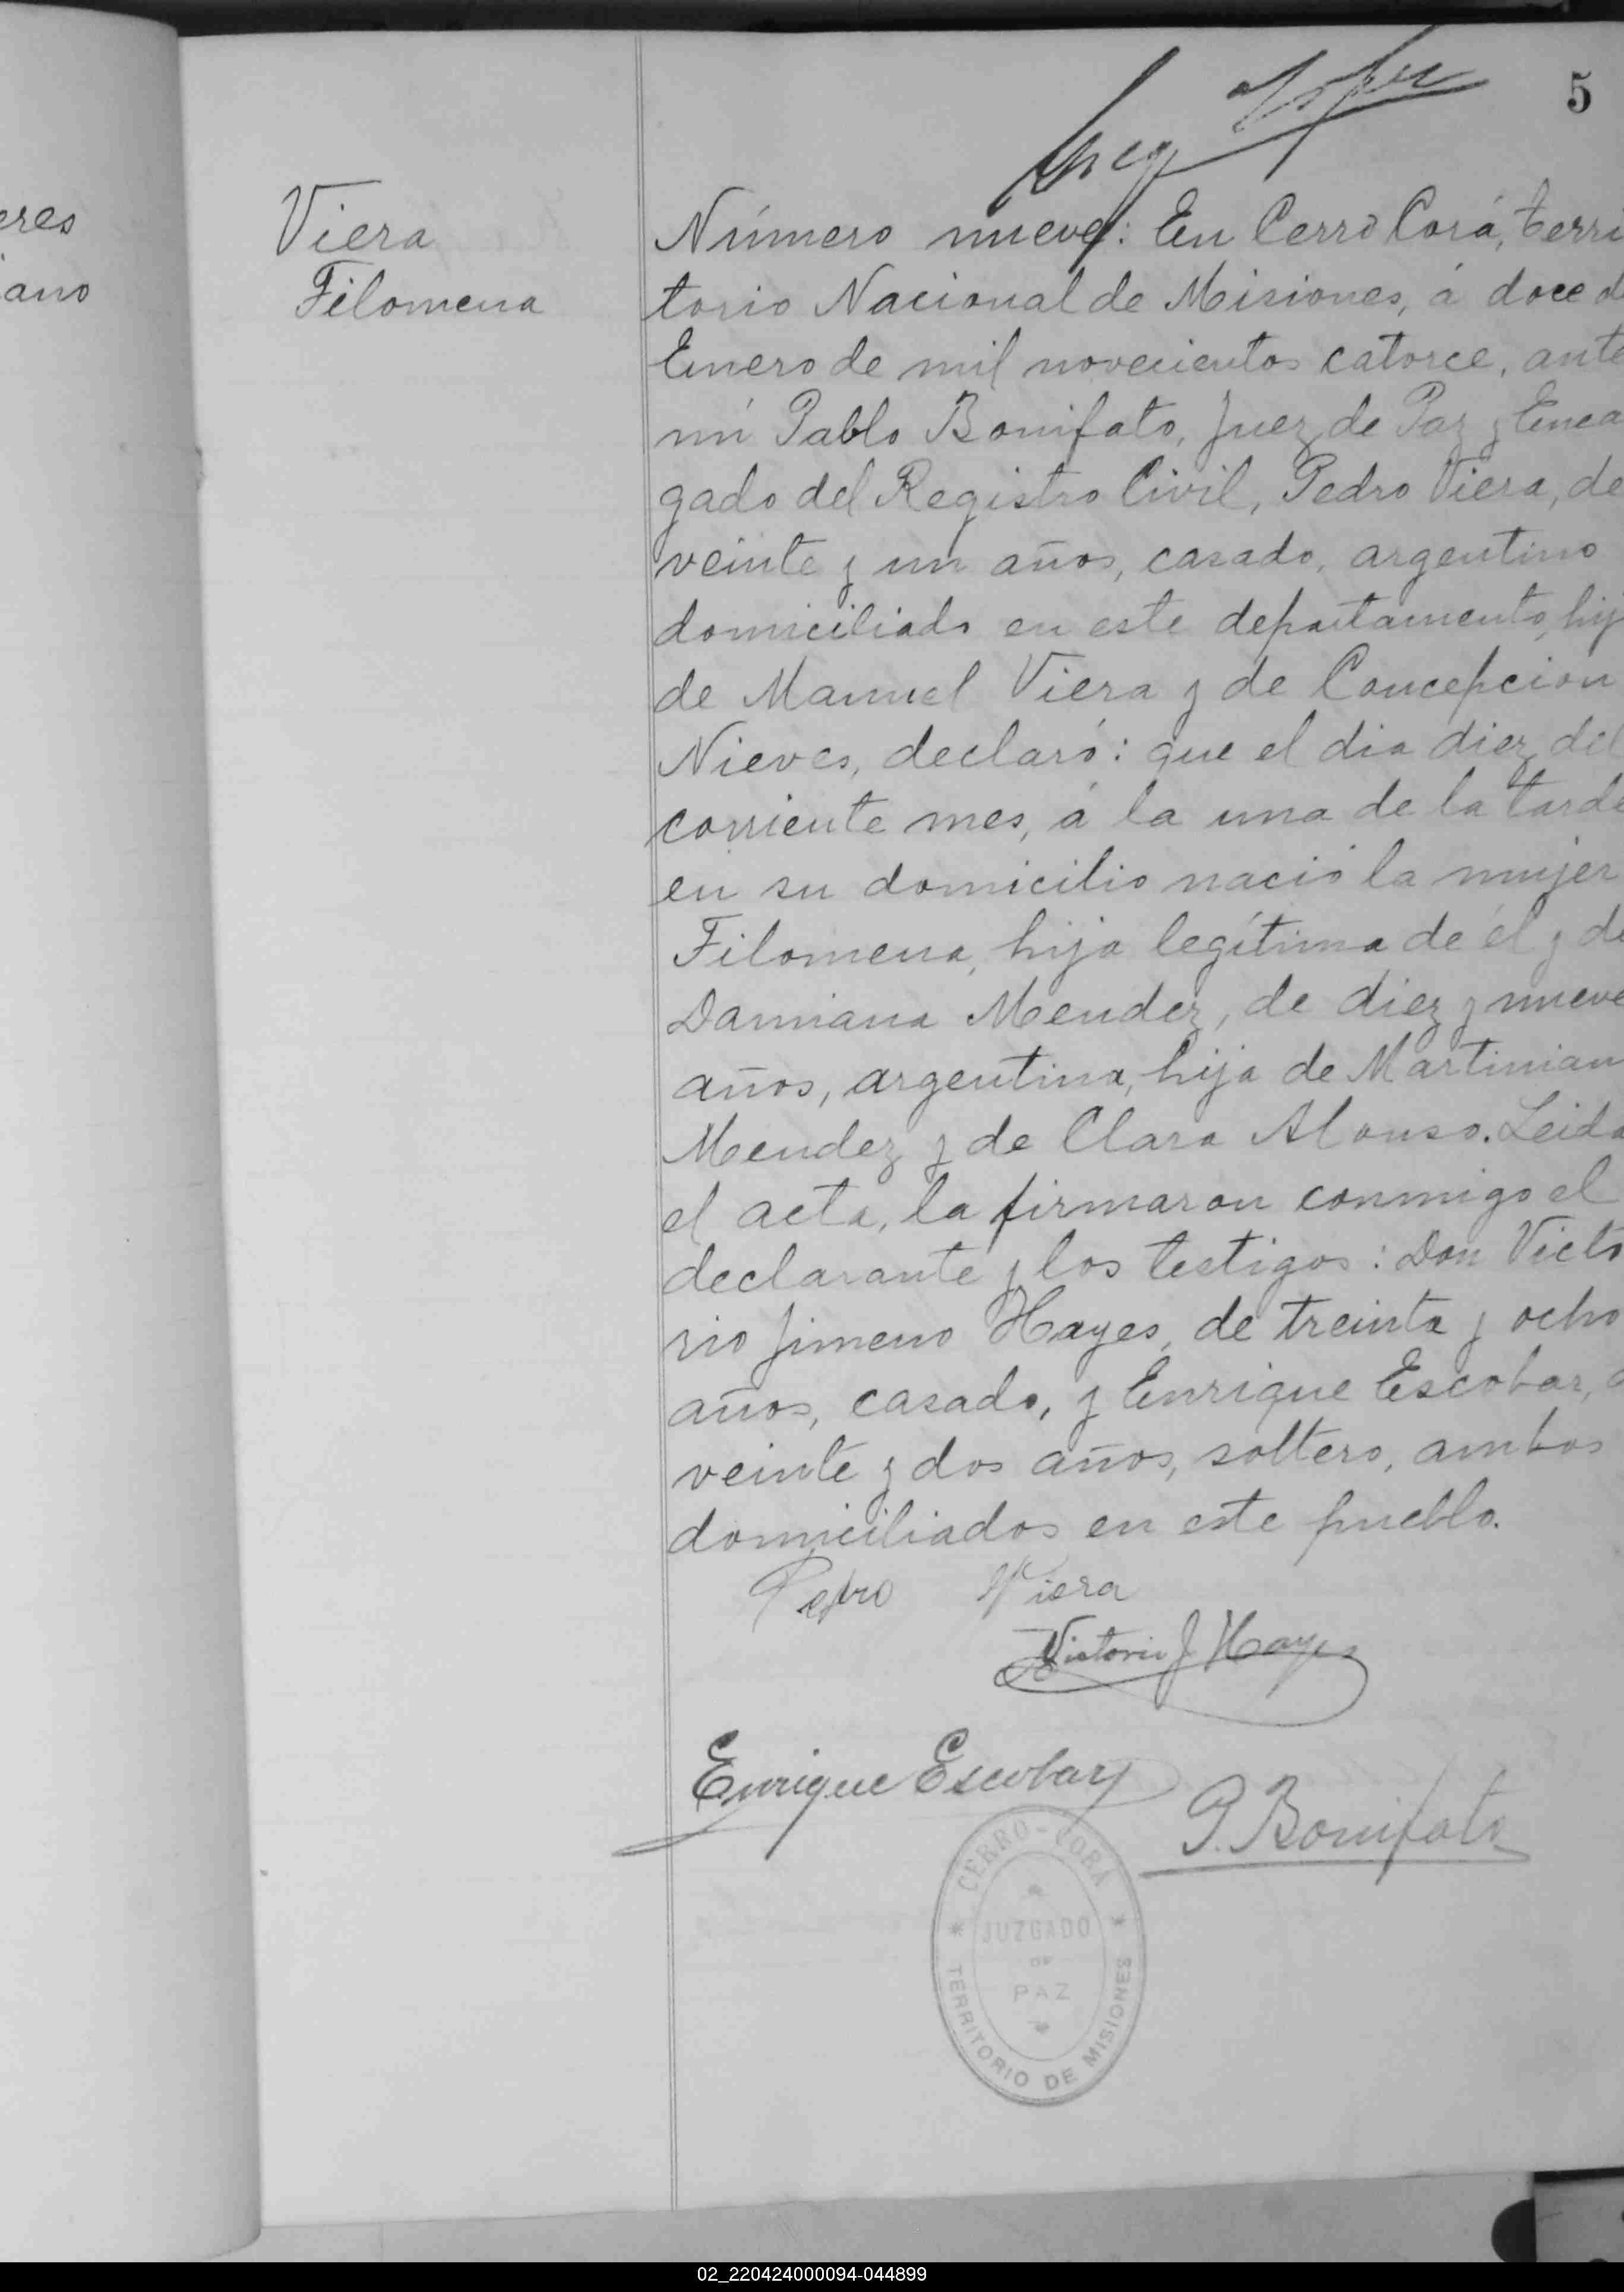 5
eres
iano
Viera
Filomena
Número nueve: En Cerro Corá, terri
torio Nacional de Misiones, á doce d
Enero de mil novecientos catorce, ante
mí Pablo Bonifato, Juez de Paz y Enca
gado del Registro Civil, Pedro Viera, de
veinte y un años, casado, argentino
domiciliado en este departamento, hij
de Manuel Viera y de Concepcion
Nieves, declaró: que el dia diez del
corriente mes, á la una de la tarde
en su domicilio nació la mujer
Filomena, hija legítima de él y de
Damiana Mendez, de diez y nueve
años, argentina, hija de Martinian
Mendez y de Clara Alonso. Leida
el acta, la firmaron conmigo el
declarante y los testigos: Don Victo
rio Jimeno Hayes, de treinta y ocho
años, casado, y Enrique Escobar, d
veinte y dos años, soltero, ambos
domiciliados en este pueblo.
Pedro Viera
Victorio J Hayes
Enrique Escobar
P. Bonifato
CERRO-CORÁ
JUZGADO
DE
PAZ
TERRITORIO DE MISIONES
02_220424000094-044899